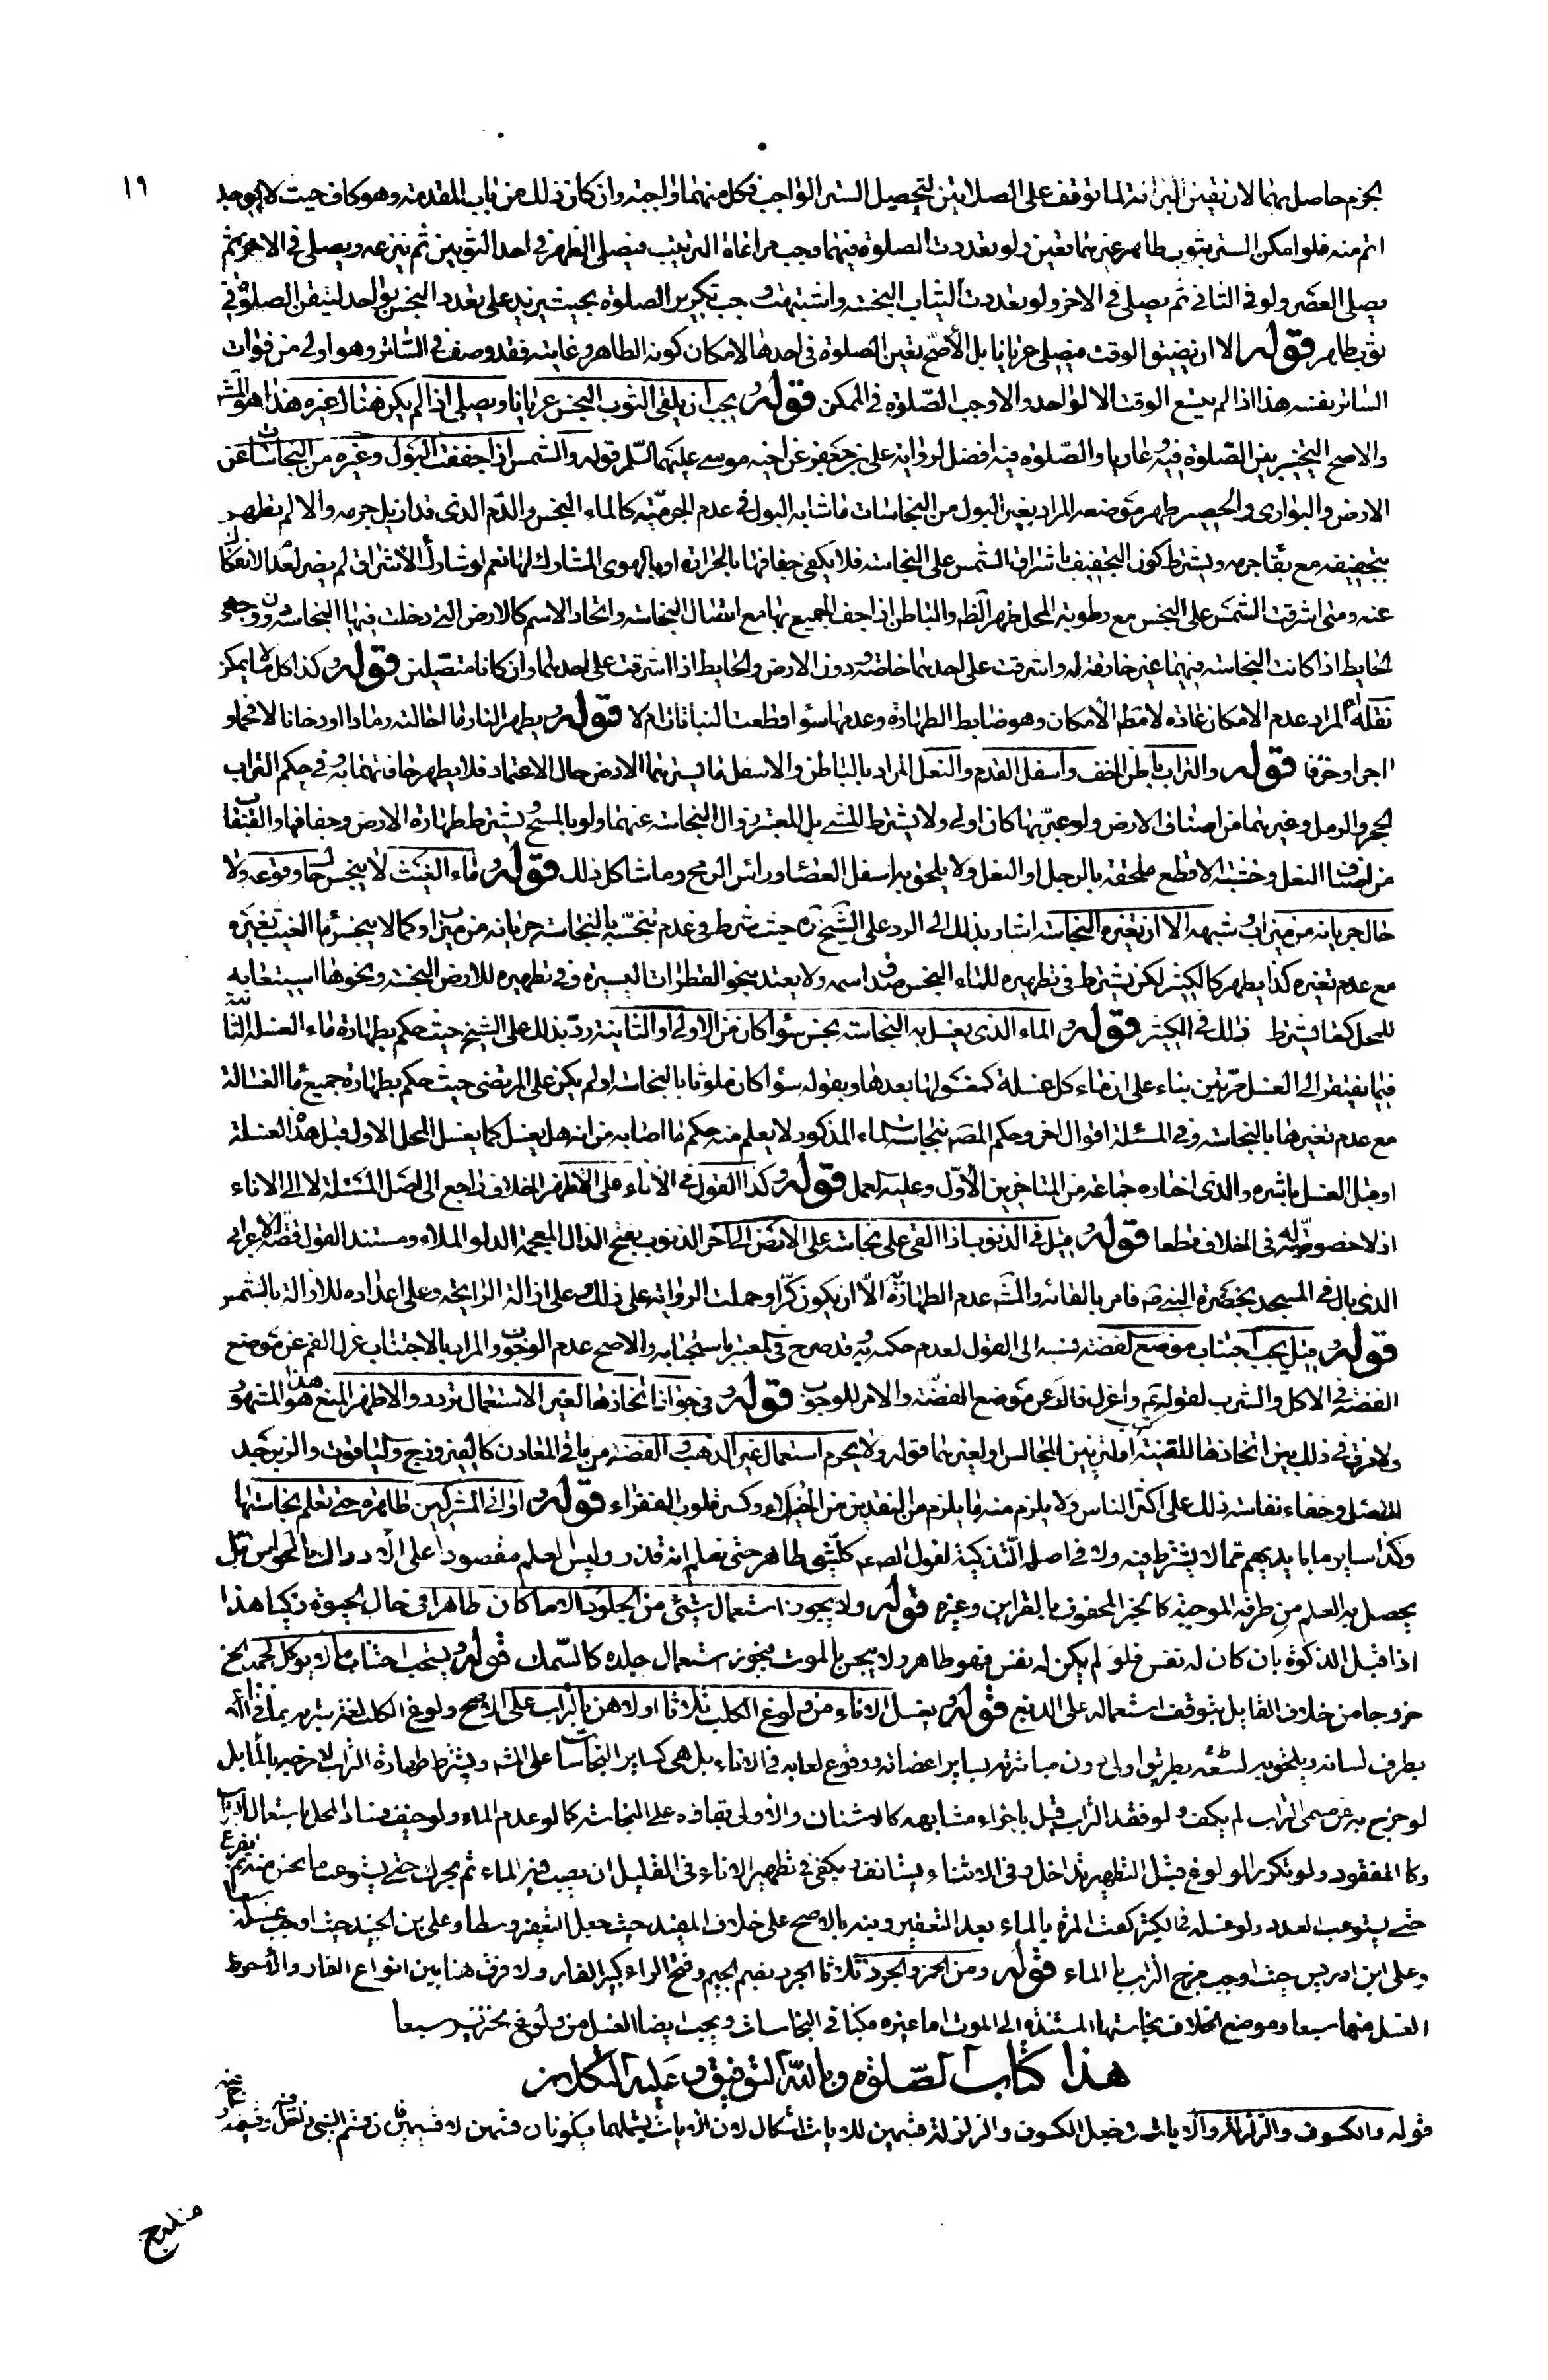 ١٩
الجزم حاصل بهما لان تيقن البراءة لما توقف على الصلاتين لتحصيل الستر الواجب فكل منهما واجبة وان كان ذلك من باب المقدمة وهو كاف حيث لا يوجد
اتم منه فلو امكن الستر بثوب طاهر غيرهما تعين ولو تعددت الصلوة فيهما وجب مراعاة الترتيب فيصلى الظهر في احد الثوبين ثم ينزعه ويصلى في الاخر ثم
يصلى العصر ولو في الثاني ثم يصلى في الاخر ولو تعددت الثياب النجسة واشتبهت وجب تكرير الصلوة بحيث يزيد على عدد النجس بواحد لتيقن الصلوة في
ثوب طاهر قوله الا ان يضيق الوقت فيصلى عريانا بل الأصح تعين الصلوة في احدها لامكان كونه الطاهر وغايته فقد وصف في الساتر وهو اولى من فوات
الساتر نفسه هذا اذا لم يتسع الوقت الا لواحد والا وجب الصلوة في الممكن قوله ويجب ان يلقى الثوب النجس عريانا ويصلى اذا لم يكن هناك غيره هذا هو المشهور
والاصح التخيير بين الصلوة فيه وعاريا والصلوة فيه افضل لرواية على بن جعفر عن اخيه موسى عليهما السلم قوله والشمس اذا جففت البول وغيره من النجاسات عن
الارض والبوارى والحصير طهر موضعه المراد بغير البول من النجاسات ما شابه البول في عدم الجرمية كالماء النجس والدم الذى قد ازيل جرمه والا لم تطهر
بتجفيفه مع بقاء جرمه ويشترط كون التجفيف باشراق الشمس على النجاسة فلا يكفى جفافها بالحرارة او بالهوى المشارك لها نعم لو شارك الاشراق لم يضر لعدم الانفكاك
عنه ومتى اشرقت الشمس على النجس مع رطوبة المحل طهر الظاهر والباطن اذا جف الجميع بها مع اتصال النجاسة واتحاد الاسم كالارض التى دخلت فيها النجاسة دون وجهى
الحايط اذا كانت النجاسة فيهما غير خارقة له واشرقت على احدهما خاصة ودون الارض والحايط اذا اشرقت على احدهما وان كانا متصلين قوله وكذا كل ما لا يمكن
نقله المراد عدم الامكان عادة لا مطلق الأمكان وهو ضابط الطهارة وعدمها سواء قطعت النباتات ام لا قوله ويطهر النار ما احالته رمادا او دخانا لا فحما او
اجرا وخزفا قوله والتراب باطن الخف واسفل القدم والنعل المراد بالباطن والاسفل ما يسترهما الارض حال الاعتماد فلا يطهر حافتهما به وفي حكم التراب
الحجر والرمل وغيرهما من اصناف الارض ولو عبر بها كان اولى ولا يشترط المشى بل المعتبر زوال النجاسة عنهما ولو بالمسح ويشترط طهارة الارض وجفافها والقبقاب
من اصناف النعل وخشبة الاقطع ملحقة بالرجل او النعل ولا يلحق به اسفل العصا وراس الرمح وما شاكل ذلك قوله وماء الغيث لا ينجس حال وقوعه ولا
حال جريانه من ميزاب وشبهه الا ان تغيره النجاسة اشار بذلك الى الرد على الشيخ ره حيث شرط في عدم تنجسه بالنجاسة جريانه من ميزاب وكما لا ينجس ماء الغيث بغيره
مع عدم تغيره كذا يطهر كالكثير لكن يشترط في تطهيره للماء النجس صدق اسمه ولا يعتد بنحو القطرات اليسيرة وفي تطهيره للارض النجسة ونحوها استيعابه
للمحل كما يشترط ذلك في الكثير قوله والماء الذى يغسل به النجاسة نجس سواء كان من الاولى او الثانية رد بذلك على الشيخ حيث حكم بطهارة ماء الغسلة الثانية
فيما يفتقر الى الغسل مرتين بناء على ان ماء كل غسلة كمغسولها بعدها وبقوله سواء كان ملوثا بالنجاسة او لم يكن على المرتضى حيث حكم بطهارة جميع ماء الغسالة
مع عدم تغيرها بالنجاسة وفي المسئلة اقوال اخر وحكم المصم بنجاسة الماء المذكور لا يعلم منه حكم ما اصابه من انه هل يغسل كما يغسل المحل الاول قبل هذه الغسلة
او قبل الغسل باسره والذى اختاره جماعة من المتاخرين الأول وعليه العمل قوله وكذا القول في الاناء على الاظهر الخلاف راجع الى اصل المسئلة لا الى الاناء
اذ لا خصوصية له في الخلاف قطعا قوله وقيل في الذنوب اذا القى على نجاسة على الارض الى اخر الذنوب بفتح الذال المعجمة الدلو الملاء ومستند القول قصة الاعرابى
الذى بال في المسجد بحضرة النبي ص فامر بالقائه والمشهور عدم الطهارة الا ان يكون كرا وحملت الرواية على ذلك وعلى ازالة الرايحة وعلى اعداده للازالة بالشمس
قوله وقيل يجب اجتناب موضع الفضة نسبه الى القول لعدم حكمه به وقد صرح في المعتبر باستحبابه والاصح عدم الوجوب والمراد بالاجتناب عزل الفم عن موضع
الفضة في الاكل والشرب لقوله ع واعزل فاك عن موضع الفضة والامر للوجوب قوله وفي جواز اتخاذها لغير الاستعمال تردد والاظهر المنع هذا هو المشهور
ولا فرق في ذلك بين اتخاذها للقنية او لتزيين المجالس او لغيرهما قوله ولا يحرم استعمال غير الذهب والفضة من باقي المعادن كالفيروزج والياقوت والزبرجد
للاصل وخفاء نفاسة ذلك على اكثر الناس ولا يلزم منه ما يلزم من النقدين من الخيلاء وكسر قلوب الفقراء قوله اوانى المشركين طاهرة حتى تعلم نجاستها
وكذا ساير ما بايديهم مما لا يشترط فيه ولا في اصله التذكية لقول الصادق ع كل شئ طاهر حتى تعلم انه قذر وليس العلم مقصودا على الادراك بالحواس بل
يحصل به العلم من طرقه الموجبة كالخبر المحفوف بالقراين وغيره قوله ولا يجوز استعمال شئ من الجلود الا ما كان طاهرا في حال الحيوة ذكيا هذا
اذا قبل الذكوة بان كان له نفس فلو لم يكن له نفس فهو طاهر ولا ينجس بالموت فيجوز استعمال جلده كالسمك قوله ويستحب اجتناب ما لا يؤكل لحمه الخ
خروجا من خلاف القايل بتوقف استعماله على الدبغ قوله ويغسل الاناء من ولوغ الكلب ثلاثا اولاهن بالتراب على الاصح ولوغ الكلب هو شربه مما في الاناء
بطرف لسانه ويلحق به لطعه بطريق اولى دون مباشرته بساير اعضائه ووقوع لعابه في الاناء بل هى كساير النجاسات على المشهور ويشترط طهارة التراب لا مزجه بالماء بل
لو خرج به عن مسمى التراب لم يكف ولو فقد التراب قيل باجزاء مشابهه كالاشنان والأولى بقاؤه على النجاسة كما لو عدم الماء ولو خيف فساد المحل باستعمال التراب
وكا المفقود ولو تكرر الولوغ قبل التطهير تداخل وفي الاثناء يستانف ويكفى في تطهير الاناء في القليل ان يصب فيه الماء ثم يحرك حتى يستوعب ما نجس منه ثم يفرغ
حتى يستوعب العدد ولو غسله في الكثير كفت المرة بالماء بعد التعفير ونبه بالاصح على خلاف المفيد حيث جعل التعفير وسطا وعلى ابن الجنيد حيث اوجب غسله سبعا
وعلى ابن ادريس حيث اوجب مزج التراب بالماء قوله ومن الخمر والجرذ ثلاثا الجرذ بضم الجيم وفتح الراء كبير الفار ولا فرق هنا بين انواع الفار والأحوط
الغسل منهما سبعا وموضع الخلاف نجاستها المستندة الى الموت اما غيره فكباقى النجاسات ويجب ايضا الغسل من ولوغ خنزير سبعا
هذا كتاب الصلوة وبالله التوفيق وعليه التكلان
قوله والكسوف والزلزلة والآيات في جعل الكسوف والزلزلة قسيمين للايات اشكال لان الايات يشملهما فيكونان قسمين لا قسيمين